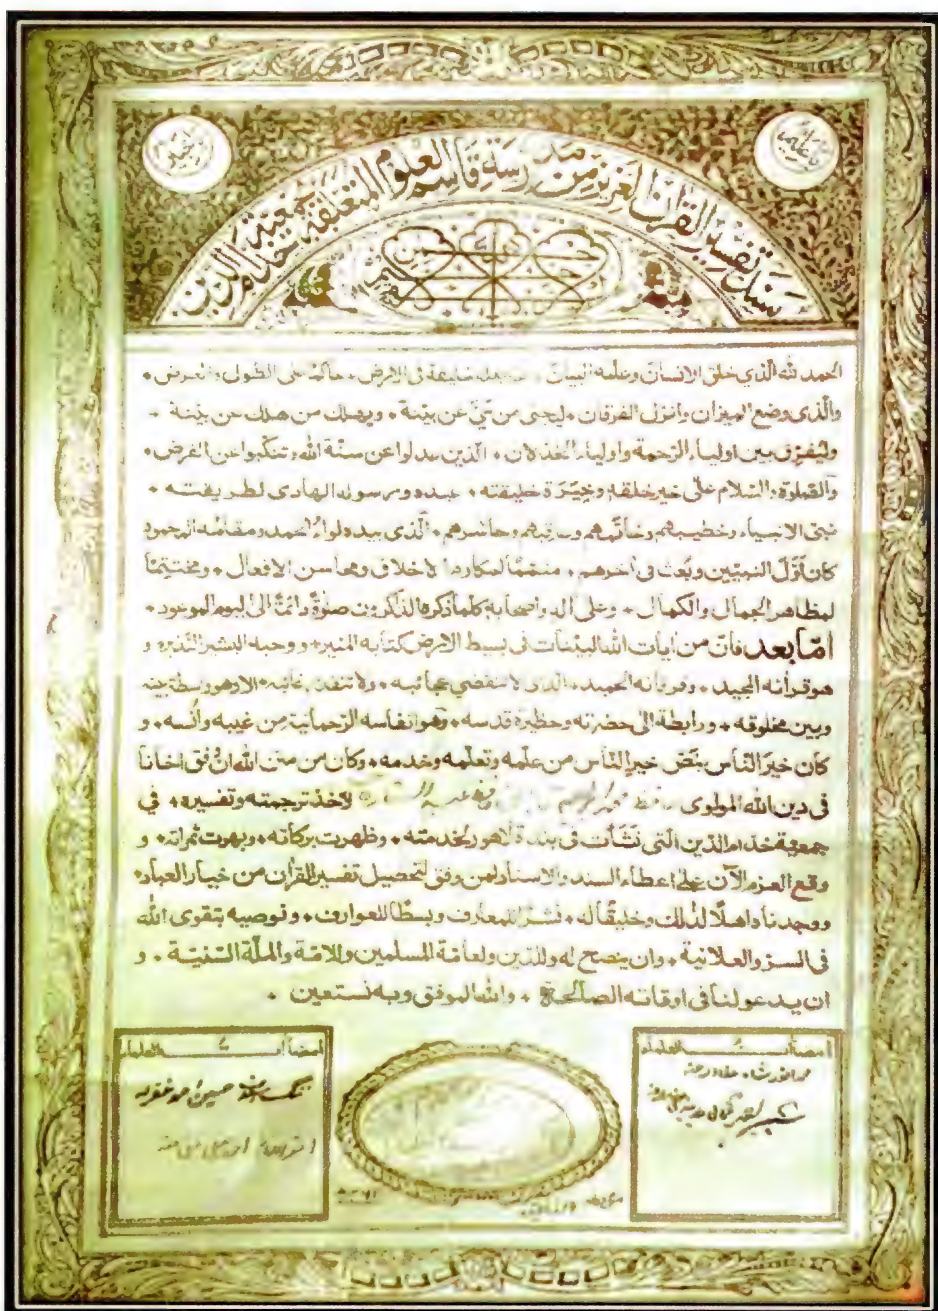 سند تفسير القرآن العزيز من مدرسة قاسم العلوم المتعلقة بجمعية خدام الدين
الحمد لله الذي خلق الانسان وعلمه البيان خليفة فى الارض ٭ حاكما على الطول والعرض ٭
والذى وضع الميزان ٭ وانزل الفرقان ٭ ليحيى من حيّ عن بينة ٭ ويهلك من هلك عن بينة ٭
وليفرق بين اولياء الرحمة واولياء الخذلان ٭ الذين عدلوا عن سنة الله وتنكبوا عن الفرض ٭
والصلوة والسلام على خير خلقه وخيرة خليقته ٭ عبده ورسوله الهادى لطريقته ٭
نبى الانبياء وخطيبهم وخاتمهم وعاقبهم وحاشرهم ٭ الذى بيده لواء الحمد ومقامه المحمود
كان اول النبيين وبعث فى اخرهم ٭ متمما لمكارم الاخلاق ومحاسن الافعال ٭ ومختتما
لمظاهر الجمال والكمال ٭ وعلى اله واصحابه كلما ذكره الذاكرون صلوة دائمة الى اليوم الموعود ٭
امّا بعد فان من آيات الله البينات فى بسط الارض كتابه المنير ٭ ووحيه البشير النذير ٭ و
هو قرأنه المجيد ٭ وفرقانه الحميد ٭ الذى لا تنقضي عجائبه ٭ ولا تنفد ٭ الا وهو وسطة بينه
وبين مخلوقه ٭ ورابطة الى حضرته وحظيرة قدسه ٭ وهو انفاسه الرحمانية من غيبه وأنسه ٭ و
كان خير الناس بنص خير الناس من علمه وتعلمه وخدمه ٭ وكان من منن الله ان وفق اخانا
فى دين الله المولوى حافظ لاخذ ترجمته وتفسيره ٭ في
جمعية خدام الدين التى نشأت فى بلدة لاهور لخدمته ٭ وظهرت بركاته ٭ وبهرت ثمراته ٭ و
وقع العزم الآن على اعطاء السند والاسناد لمن وفق لتحصيل تفسير القرآن من خيار العباد ٭
ووجدناه اهلا لذلك وخليقا له ٭ نشرا للمعارف وبسطا للعوارف ٭ ونوصيه بتقوى الله
فى السر والعلانية ٭ وان ينصح له وللدين ولعامة المسلمين وللامة والملة السنية ٭ و
ان يدعو لنا فى اوقاته الصالحة ٭ والله الموفق وبه نستعين ٭
امضاآت العلماء
محمد انور شاه
شبير احمد
امضاآت العلماء
حسين احمد غفرله